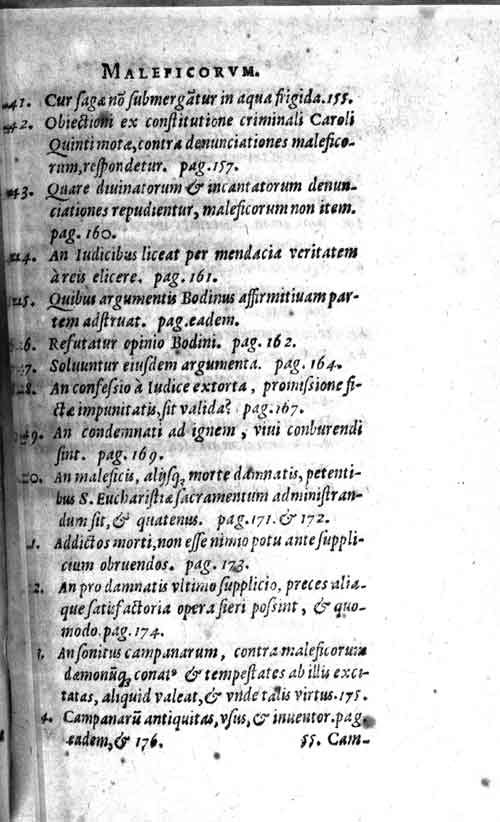 MALEFICORVM.
41. Cur sagæ nõ submergãtur in aqua frigida.155.
42. Obiectioni ex constitutione criminali Caroli
Quinti motæ, contra denunciationes malefico-
rum, respondetur. pag.157.
43. Quare diuinatorum & incantatorum denun-
ciationes repudientur, maleficorum non item.
pag. 160.
44. An Iudicibus liceat per mendacia veritatem
à reis elicere. pag. 161.
45. Quibus argumentis Bodinus affirmitiuam par-
tem adstruat. pag.eadem.
46. Refutatur opinio Bodini. pag. 162.
47. Soluuntur eiusdem argumenta. pag. 164.
48. An confessio à Iudice extorta, promissione fi-
ctæ impunitatis, sit valida? pag.167.
49. An condemnati ad ignem, viui conburendi
sint. pag. 169.
0. An maleficis, alijsq, morte dãnatis, petenti-
bus S. Eucharistiæ sacramentum administran-
dum sit, & quatenus. pag.171. & 172.
1. Addictos morti, non esse nimio potu ante suppli-
cium obruendos. pag. 173.
2. An pro damnatis vltimo supplicio, preces alia-
que satisfactoria opera fieri possint, & quo-
modo.pag.174.
3. An sonitus campanarum, contra maleficorum
dæmonũq, conatꝰ & tempestates ab illis exci-
tatas, aliquid valeat, & vnde talis virtus.175.
4. Campanarũ antiquitas, vsus, & inuentor.pag.
eadem, & 176.
55. Cam-